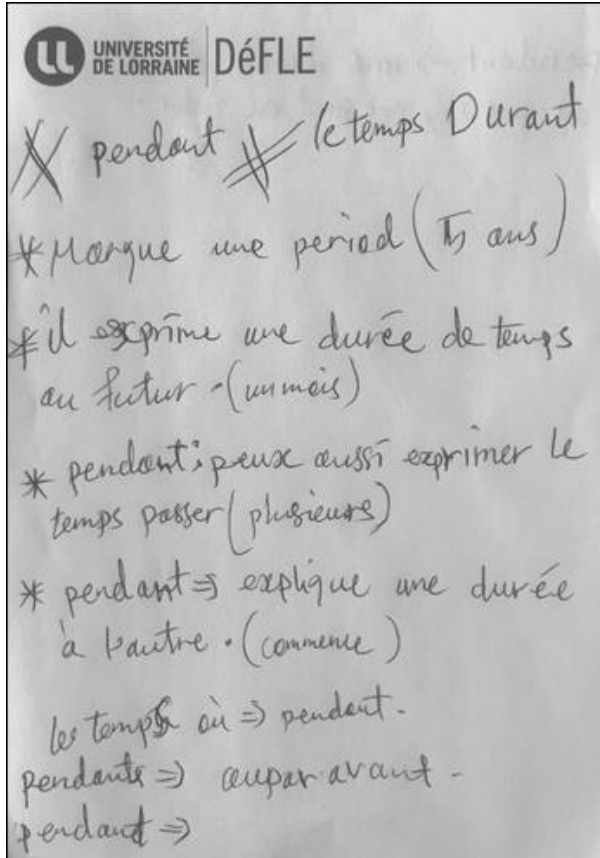 UNIVERSITÉ
DE LORRAINE
DéFLE
pendant le temps Durant
* Marque une period ( ans)
* il exprime une durée de temps
au futur . (un mois)
* pendant : peux aussi exprimer le
temps passer (plusieurs)
* pendant => explique une durée
à l'autre . (commence)
les temps où => pendant.
pendante => aupar avant -
pendant =>